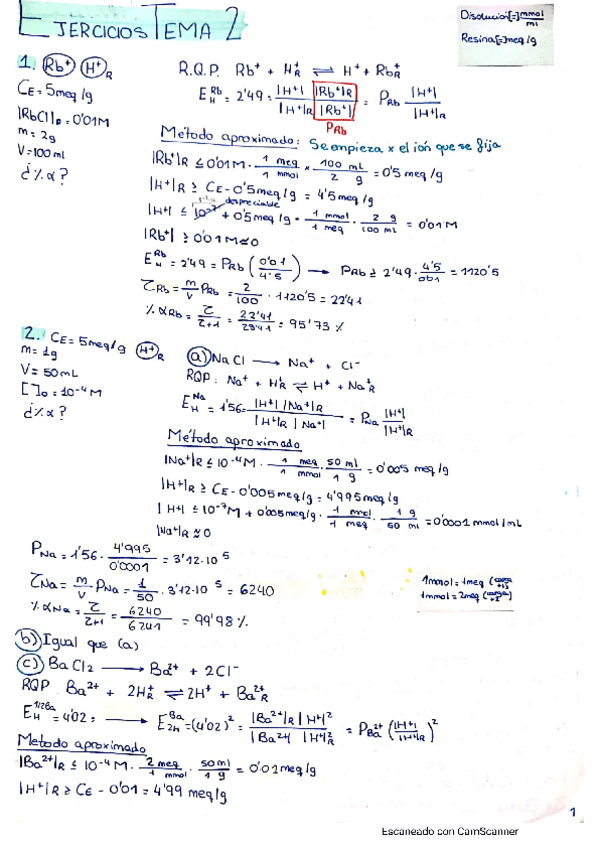 EJERCICIOS TEMA 2
Disolución[=] mmol/ml
Resina[=] meq/g
1. Rb⁺ H⁺R
R.Q.P. Rb⁺ + H⁺R ⇌ H⁺ + Rb⁺R
CE = 5meq/g
E Rb H = 2'49 = |H⁺| |Rb⁺|R / |H⁺|R |Rb⁺| = PRb |H⁺| / |H⁺|R
PRb
|RbCl|₀ = 0'01M
m = 2g
V = 100 ml
¿% α?
Método aproximado: Se empieza x el ión que se fija
|Rb⁺|R ≤ 0'01M · 1 meq / 1 mmol × 100 mL / 2 g = 0'5 meq/g
|H⁺|R ≥ CE - 0'5 meq/g = 4'5 meq/g
despreciable
|H⁺| ≤ 10⁻⁷ + 0'5 meq/g · 1 mmol / 1 meq · 2 g / 100 mL = 0'01M
|Rb⁺| ≥ 0'01M ≈ 0
E Rb H = 2'49 = PRb (0'01 / 4'5) → PRb ≥ 2'49 · 4'5 / 0'01 = 1120'5
τRb = m/V PRb = 2/100 · 1120'5 = 22'41
% αRb = τ / τ+1 = 22'41 / 23'41 = 95'73 %
2. CE = 5meq/g H⁺R
m = 1g
V = 50 mL
[ ]₀ = 10⁻⁴ M
¿% α?
a) NaCl → Na⁺ + Cl⁻
RQP: Na⁺ + H⁺R ⇌ H⁺ + Na⁺R
E Na H = 1'56 = |H⁺| |Na⁺|R / |H⁺|R |Na⁺| = PNa |H⁺| / |H⁺|R
Método aproximado
|Na⁺|R ≤ 10⁻⁴ M · 1 meq / 1 mmol · 50 ml / 1 g = 0'005 meq/g
|H⁺|R ≥ CE - 0'005 meq/g = 4'995 meq/g
|H⁺| ≤ 10⁻⁷ M + 0'005 meq/g · 1 mmol / 1 meq · 1 g / 50 ml = 0'0001 mmol/mL
|Na⁺|R ≈ 0
PNa = 1'56 · 4'995 / 0'0001 = 3'12·10⁵
τNa = m/V PNa = 1/50 · 3'12·10⁵ = 6240
% αNa = τ / τ+1 = 6240 / 6241 = 99'98 %
1mmol = 1meq (carga +1)
1mmol = 2meq (carga +2)
b) Igual que (a)
c) BaCl2 → Ba²⁺ + 2Cl⁻
RQP Ba²⁺ + 2H⁺R ⇌ 2H⁺ + Ba²⁺R
E 1/2Ba H = 4'02 = → E Ba 2H = (4'02)² = |Ba²⁺|R |H⁺|² / |Ba²⁺| |H⁺|²R = PBa²⁺ (|H⁺| / |H⁺|R)²
Metodo aproximado
|Ba²⁺|R ≤ 10⁻⁴ M · 2 meq / 1 mmol · 50 ml / 1 g = 0'01 meq/g
|H⁺|R ≥ CE - 0'01 = 4'99 meq/g
1
Escaneado con CamScanner